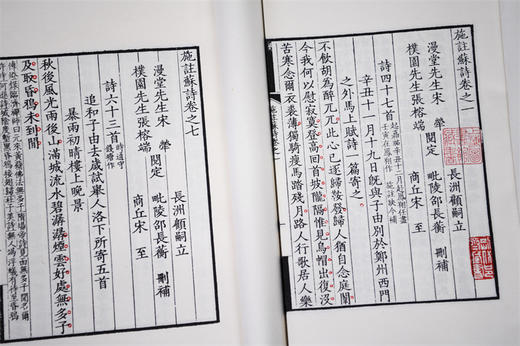 施註蘇詩卷之一
長洲顧嗣立
漫堂先生宋 犖閱定 毗陵邵長蘅 刪補
樸園先生張榕端 商丘宋 至
詩四十七首
辛丑十一月十九日既與子由別於鄭州西門
之外馬上賦詩一篇寄之
不飲胡為醉兀兀此心已逐歸鞍發歸人猶自念庭闈
今我何以慰寂寞登高回首坡隴隔惟見烏帽出復沒
苦寒念爾衣裘薄獨騎瘦馬踏殘月路人行歌居人樂
施註蘇詩卷之七
長洲顧嗣立
漫堂先生宋 犖閱定 毗陵邵長蘅 刪補
樸園先生張榕端 商丘宋 至
詩六十三首 時通守錢塘作
追和子由去歲試舉人洛下所寄五首
暴雨初晴樓上晚景
秋後風光雨後山滿城流水碧潺潺煙雲好處無多子
及取昏鴉未到間